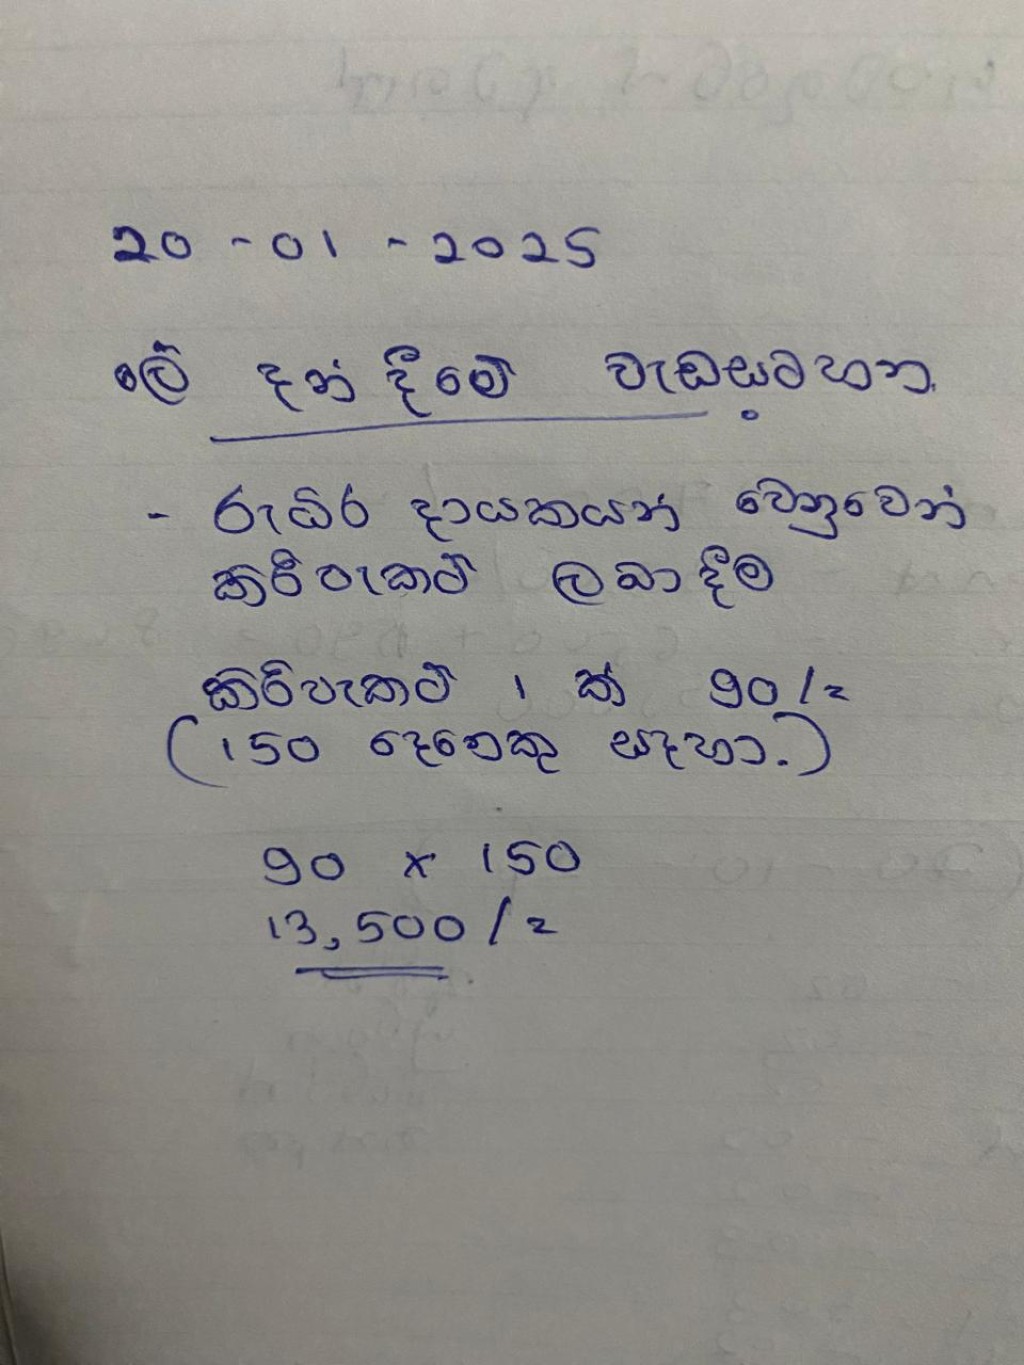 20 - 01 - 2025
ලේ දන් දීමේ වැඩසටහන.
- රුධිර දායකයන් වෙනුවෙන්
කිරිපැකට් ලබාදීම
කිරිපැකට් 1 ක් 90/=
(150 දෙනෙකු සඳහා.)
90 x 150
13,500/=